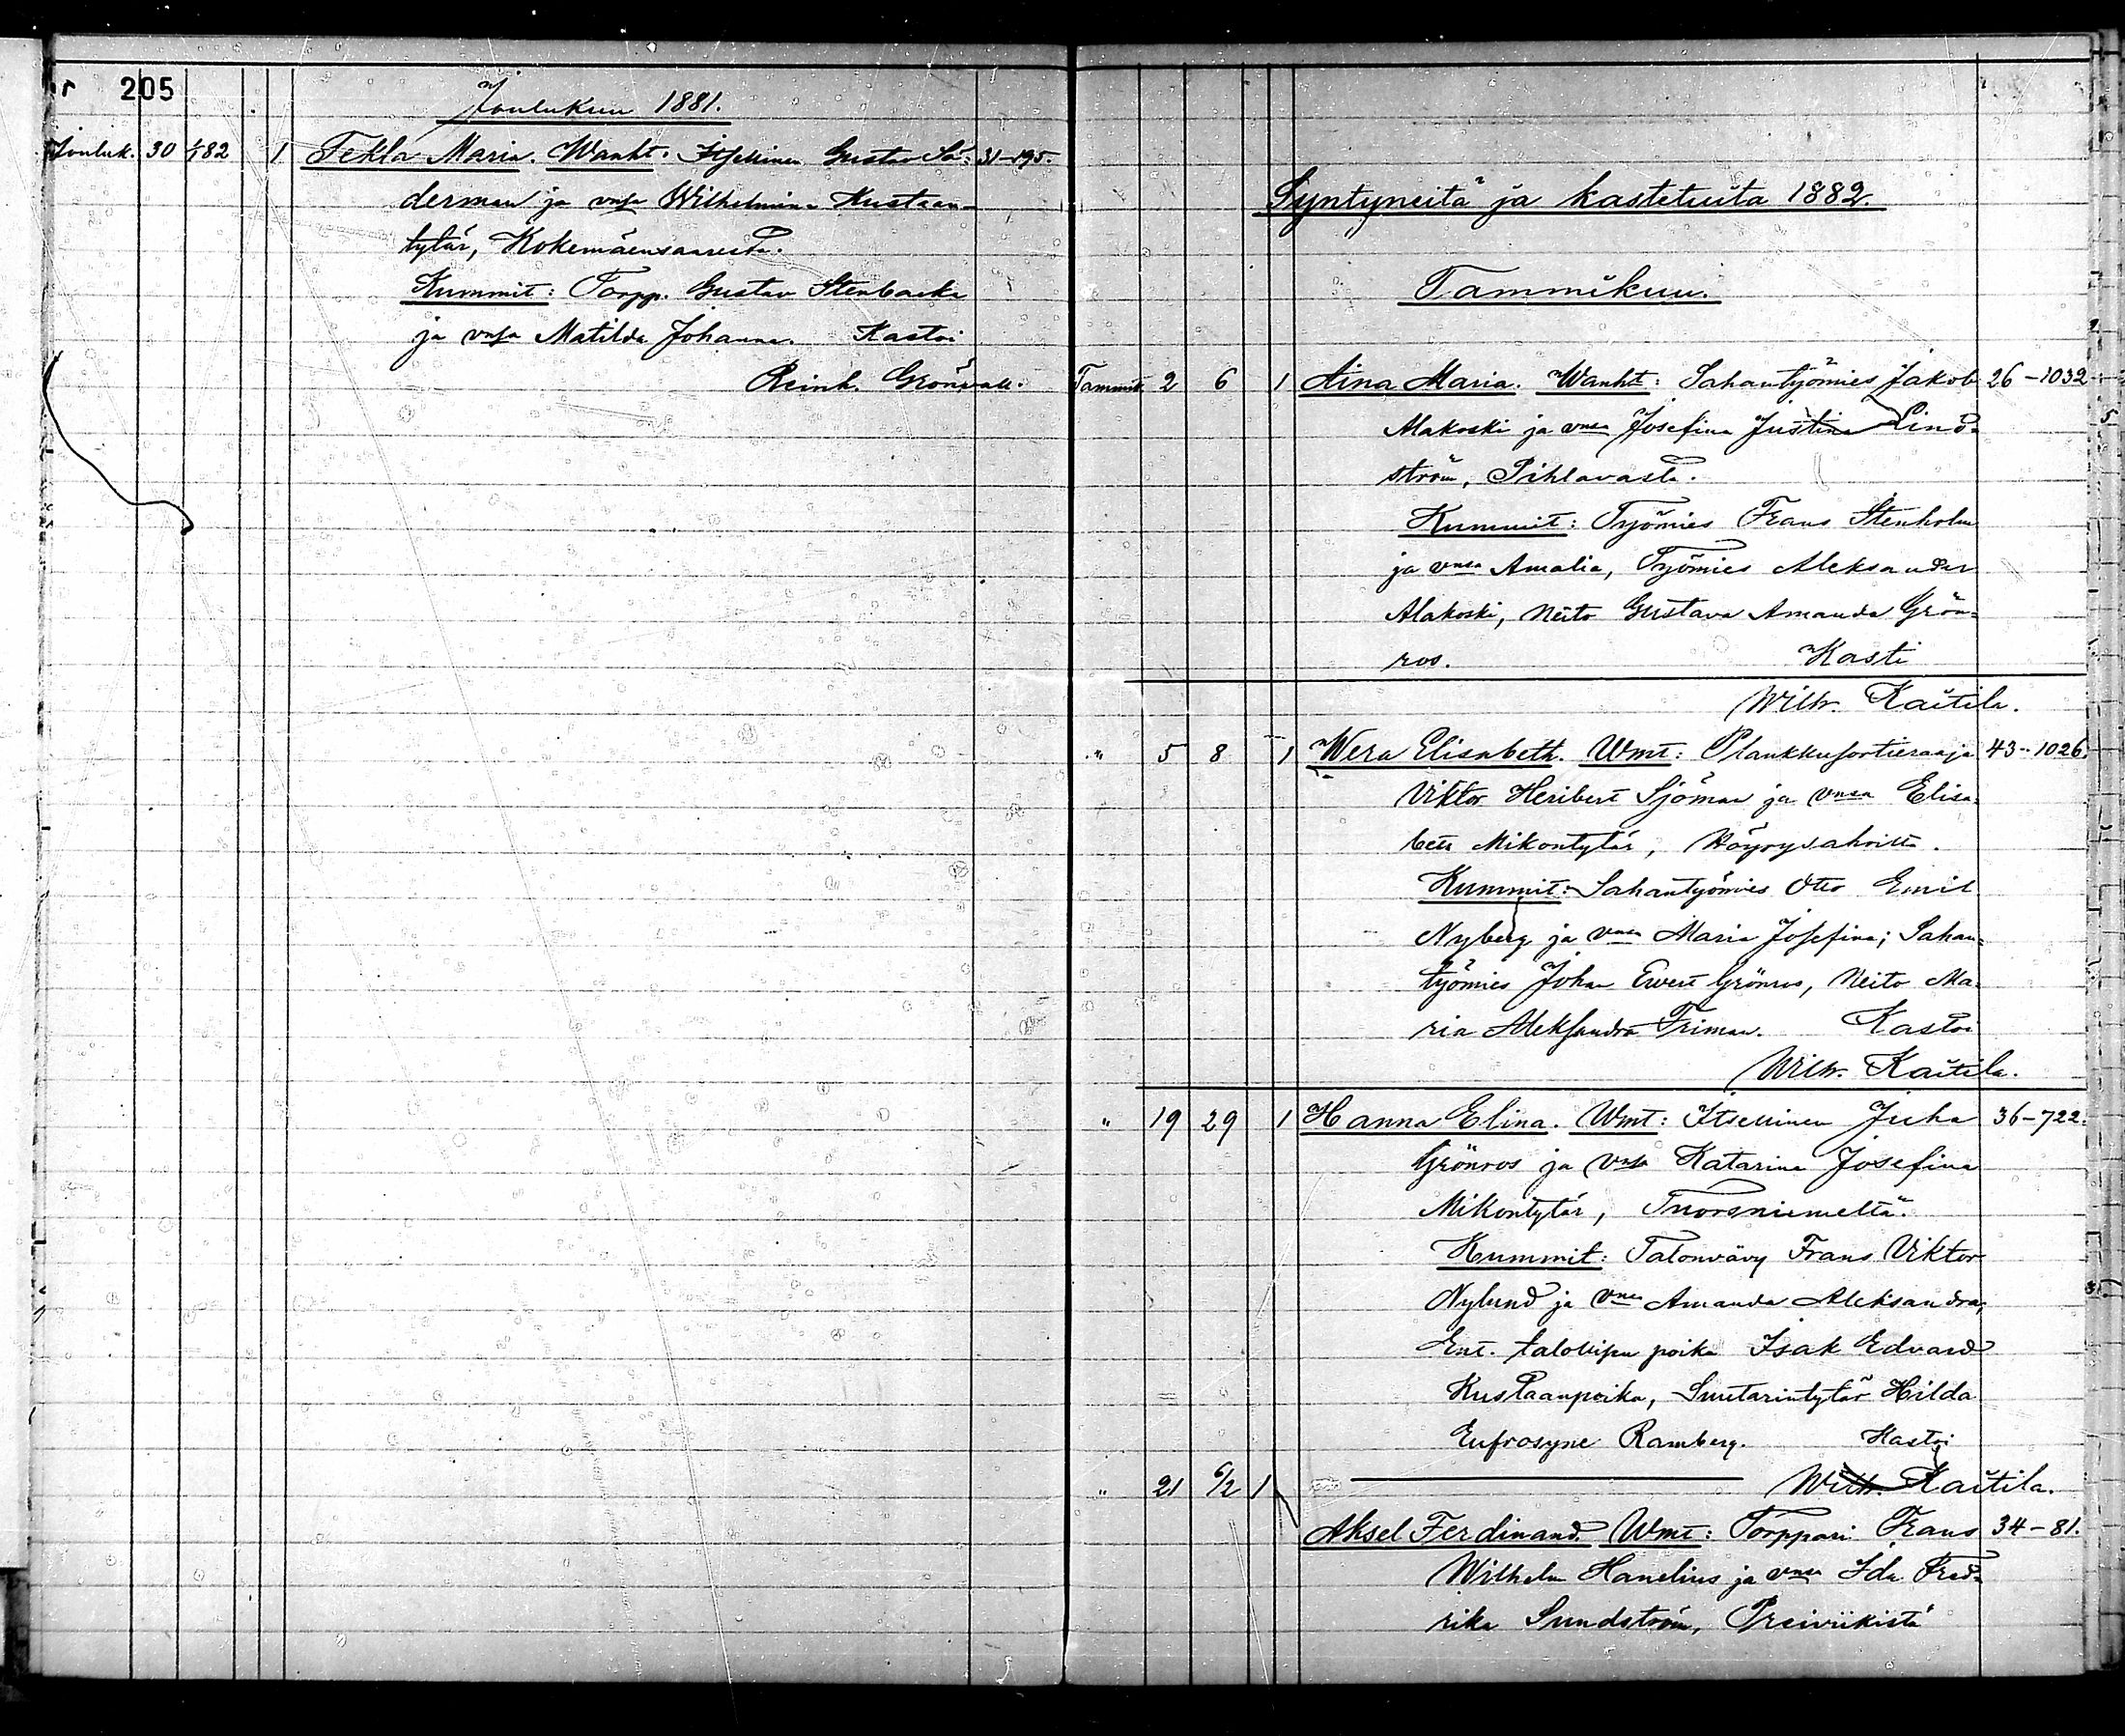 205
Joulukuu 1881.
Jouluk. 30 1/1 82 1 Tekla Maria. Wanht. Itsellinen Gustav Sö= 31-195.
derman ja vmsa Wilhelmina Kustaan-
tytär, Kokemäensaaresta.
Kummit: Torpp. Gustav Stenbacka
ja vmsa Matilda Johanna. Kastoi
Reinh. Grönvall.
Syntyneitä ja kastetuita 1882.
Tammikuu.
Tammik. 2 6 1 Aina Maria. Wanht: Sahantyömies Jakob 26-1032
Alakoski ja vmsa Josefina Justina Lind-
ström, Pihlavasta.
Kummit: Työmies Frans Stenholm
ja vmsa Amalia, Työmies Aleksander
Alakoski, Neito Gustava Amanda Grön=
ros. Kasti
Wilh. Kaitila.
" 5 8 1 Wera Elisabeth. Wmt: Plankkusortieraaja 43-1026.
Viktor Heribert Sjöman ja vmsa Elisa-
bett Mikontytär, Höyrysahoilta.
Kummit: Sahantyömies Otto Emil
Nyberg ja vmsa Maria Josefina; Sahan=
työmies Johan Evert Grönros, Neito Ma-
ria Aleksandra Friman. Kastoi
Wilh. Kaitila.
" 19 29 1 Hanna Elina. Wmt: Itsellinen Juha 36-722.
Grönros ja vmsa Katarina Josefina
Mikontytär, Tuorsniemeltä.
Kummit: Talonvävy Frans Viktor
Nylund ja vmsa Amanda Aleksandra,
Ent. talollisen poika Isak Edvard
Kustaanpoika, Suutarintytär Hilda
Eufrosyne Ramberg. Kastoi
Wilh. Kaitila.
" 21 6/2 1
Aksel Ferdinand. Wmt: Torppari Frans 34-81.
Wilhelm Hanelius ja vmsa Ida Fred-
rika Sundström, Preiviikistä